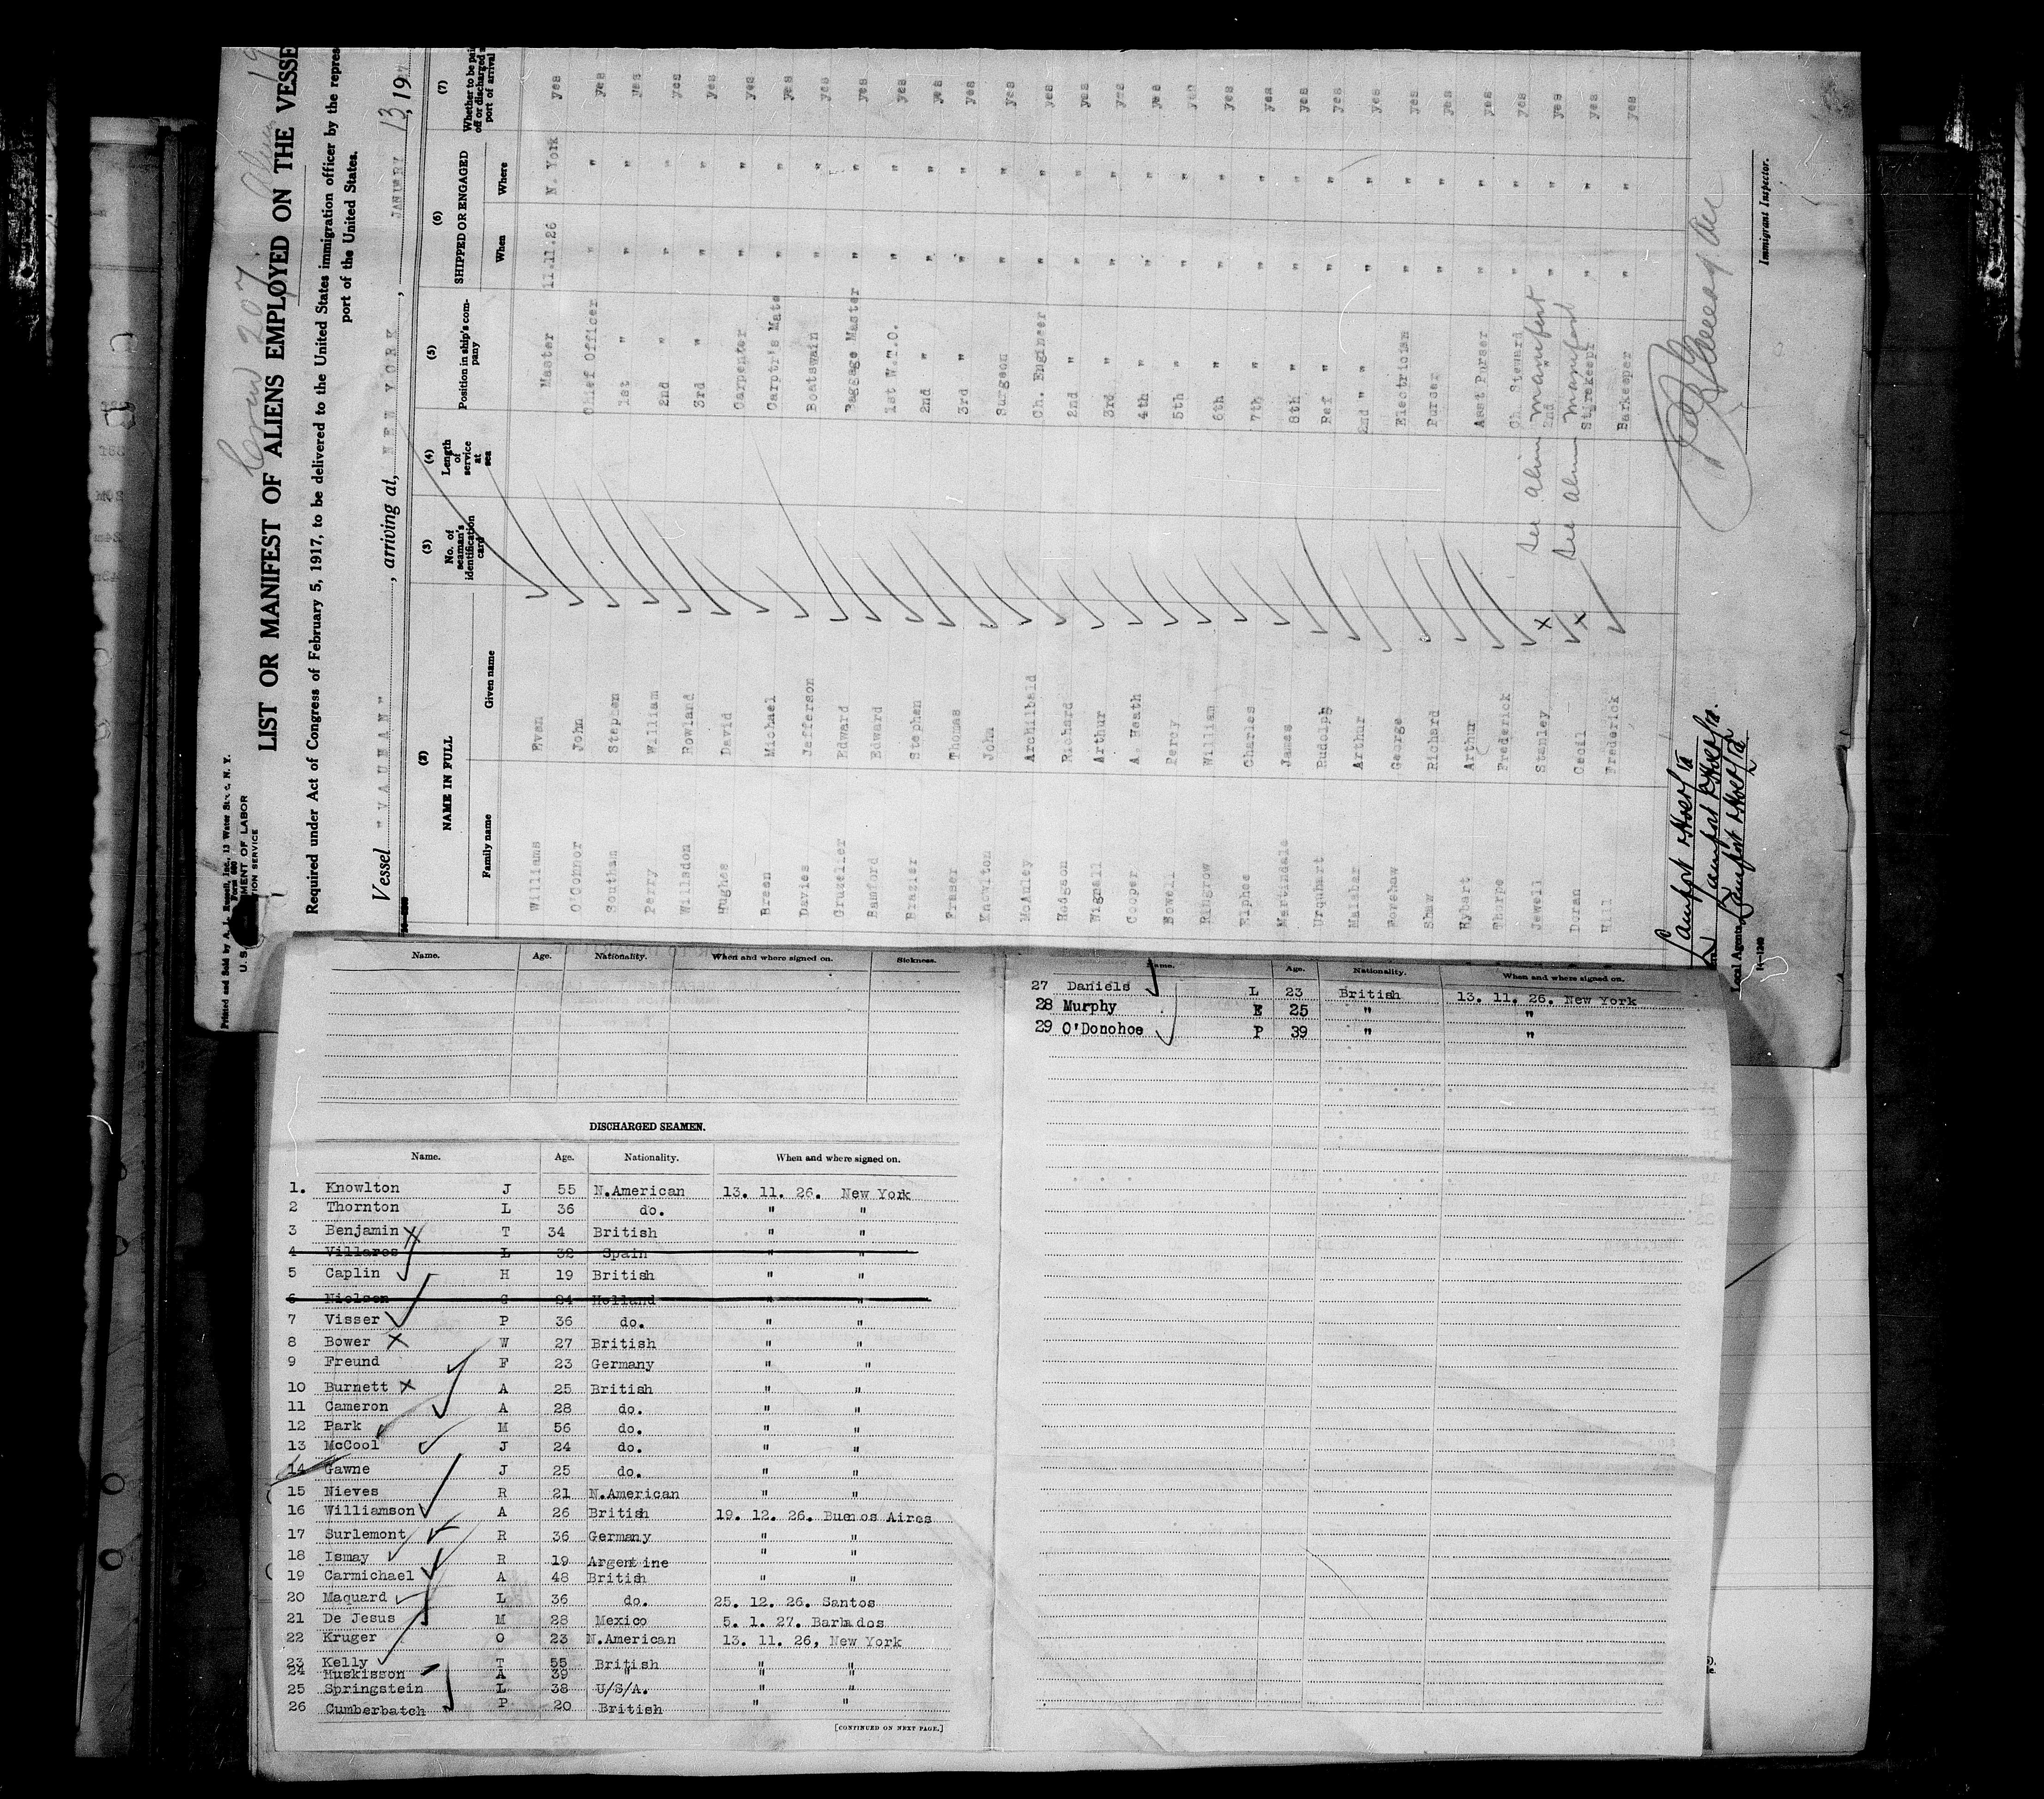 Printed and Sold by A. L. Russell, Inc., 13 Water St., N. Y.
Form 680
U. S. MENT OF LABOR
TION SERVICE
Crew 207. 19
LIST OR MANIFEST OF ALIENS EMPLOYED ON THE VESSE
Required under Act of Congress of February 5, 1917, to be delivered to the United States immigration officer by the repres
port of the United States.
Vessel "VAUBAN", arriving at, NEW YORK, JANUARY 13, 1927
(2) (3) (4) (5) (6) (7)
NAME IN FULL No. of seaman's identification card Length of service at sea Position in ship's company SHIPPED OR ENGAGED Whether to be paid off or discharged at port of arrival
Family name Given name When Where
Williams Evan Master 11.11.26 N. York yes
O'Connor John Chief Officer " " yes
Southan Stephen 1st " " " yes
Perry William 2nd " " " yes
Willsdon Rowland 3rd " " " yes
Hughes David Carpenter " " yes
Breen Michael Carptr's Mate " " yes
Davies Jefferson Boatswain " " yes
Gruzelier Edward Baggage Master " " yes
Bamford Edward 1st W.T.O. " " yes
Brazier Stephen 2nd " " " yes
Fraser Thomas 3rd " " " yes
Knowlton John Surgeon " " yes
McAuley Archilbald Ch. Engineer " " yes
Hodgson Richard 2nd " " " yes
Wignall Arthur 3rd " " " yes
Cooper A. Heath 4th " " " yes
Bowell Percy 5th " " " yes
Ringrow William 6th " " " yes
Elphee Charles 7th " " " yes
Martindale James 8th " " " yes
Urquhart Rudolph Ref " " " yes
Malabar Arthur 2nd " " " " yes
Forshaw George Electrician " " yes
Shaw Richard Purser " " yes
Hybart Arthur Asst Purser " " yes
Thorpe Frederick Ch. Steward " " yes
Jewell Stanley x See alien manifest 2nd " " " yes
Doran Cecil x See alien manifest Storekeepr " " yes
Hill Frederick Barkeeper " " yes
Lamport & Holt Ltd
Lamport & Holt Ltd
Local Agents Lamport & Holt Ltd
14-1240
Immigrant Inspector.
Name. Age. Nationality. When and where signed on. Sickness.
DISCHARGED SEAMEN.
Name. Age. Nationality. When and where signed on.
1. Knowlton J 55 N.American 13. 11. 26. New York
2 Thornton L 36 do. " "
3 Benjamin x T 34 British " "
4 Villares L 32 Spain " "
5 Caplin H 19 British " "
6 Nielsen G 24 Holland " "
7 Visser P 36 do. " "
8 Bower x W 27 British " "
9 Freund F 23 Germany " "
10 Burnett x A 25 British " "
11 Cameron A 28 do. " "
12 Park M 56 do. " "
13 McCool J 24 do. " "
14 Gawne J 25 do. " "
15 Nieves R 21 N.American " "
16 Williamson A 26 British 19. 12. 26. Buenos Aires
17 Surlemont R 36 Germany " "
18 Ismay R 19 Argentine " "
19 Carmichael A 48 British " "
20 Maquard L 36 do. 25. 12. 26. Santos
21 De Jesus M 28 Mexico 5. 1. 27. Barbados
22 Kruger O 23 N.American 13. 11. 26, New York
23 Kelly T 55 British " "
24 Huskisson A 39 " " "
25 Springstein L 38 U/S/A. " "
26 Cumberbatch P 20 British " "
[CONTINUED ON NEXT PAGE.]
Name. Age. Nationality. When and where signed on.
27 Daniels L 23 British 13. 11. 26. New York
28 Murphy E 25 " "
29 O'Donohoe P 39 " "